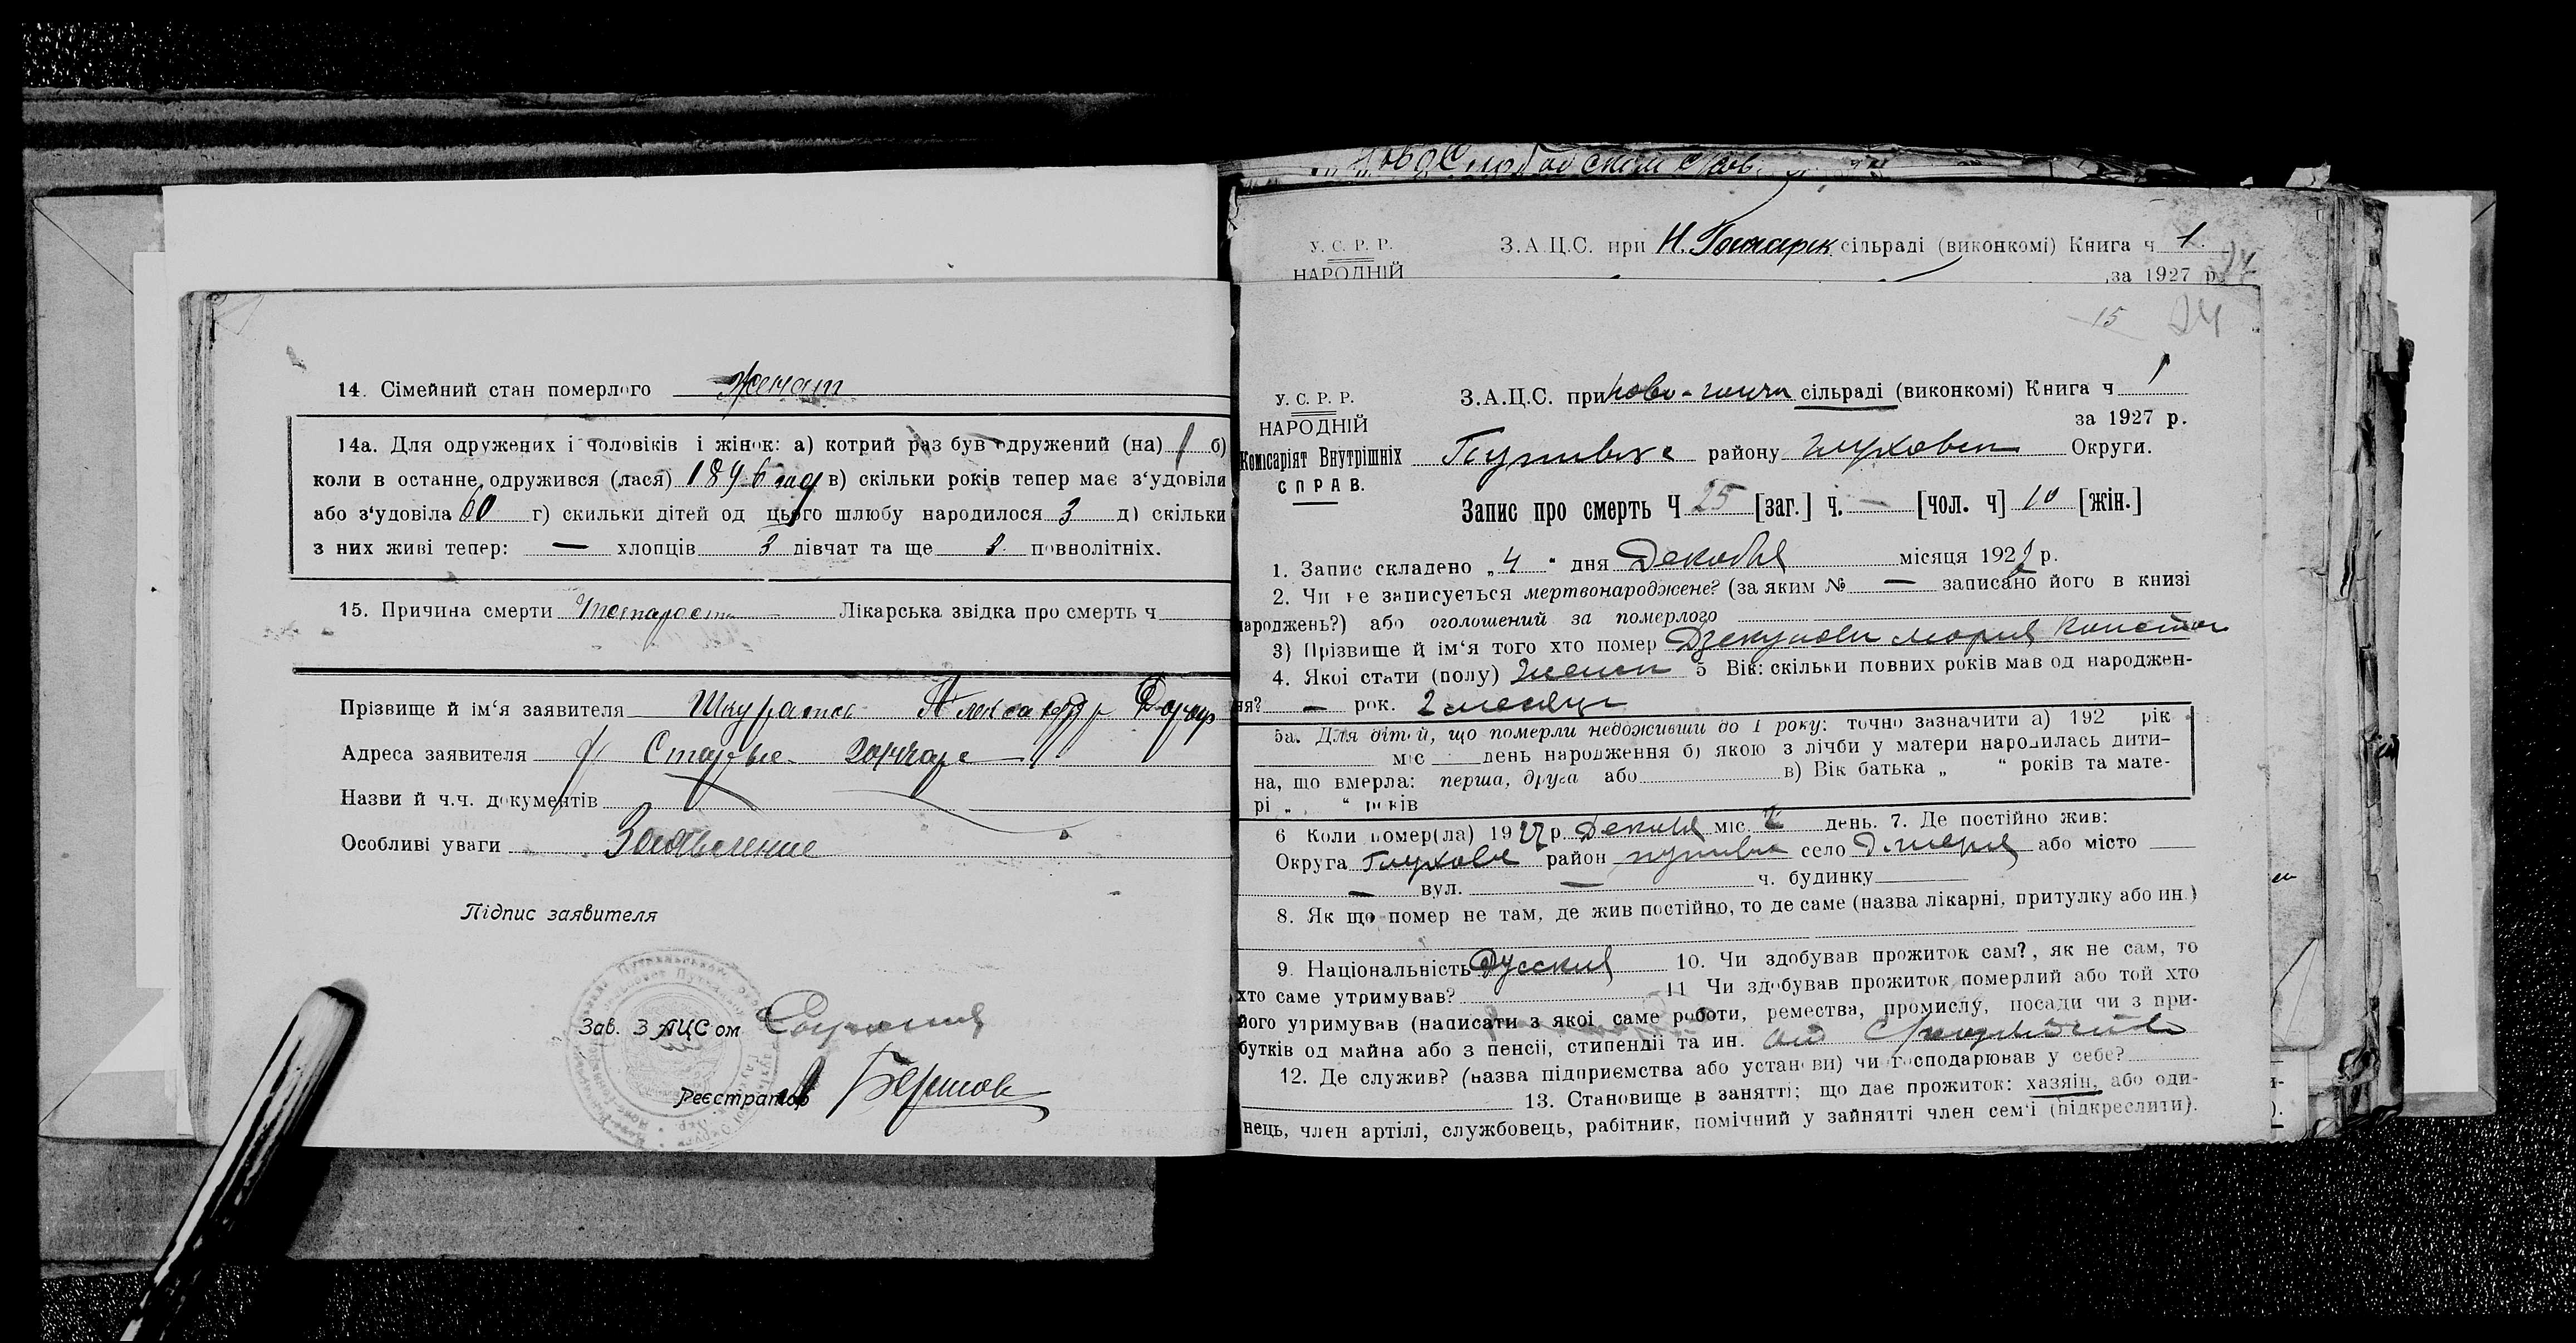 14. Сімейний стан померлого Женат
14а. Для одружених і чоловіків і жінок: а) котрий раз був одружений (на) 1 б)
коли в останнє одружився (лася) 1896 год в) скільки років тепер має з‘удовіли
або з‘удовіла 60 г) скильки дітей од цього шлюбу народилося 3 д) скільки
з них живі тепер: — хлопців 3 дівчат та ще 3 повнолітніх.
15. Причина смерти Лікарська звідка про смерть ч
Прізвище й ім‘я заявителя Александр
Адреса заявителя Старые
Назви й ч.ч. документів
Особливі уваги Заявление
Підпис заявителя
Зав. ЗАЦСом
Реєстратор
Слободском
У. С. Р. Р. З.А.Ц.С. при Н. Гончарск сільраді (виконкомі) Книга ч 1.
НАРОДНІЙ за 1927 р.
15 24
У. С. Р. Р. З.А.Ц.С. при Ново-гонч сільраді (виконкомі) Книга ч 1
НАРОДНІЙ за 1927 р.
Комісаріят Внутрішніх района Округи.
СПРАВ.
Запис про смерть Ч 25 [заг.] ч. — [чол. ч] 10 [жін.]
1. Запис складено „4“ дня Декабря місяця 1927 р.
2. Чи не записується мертвонароджене? (за яким № — записано його в книзі
народжень?) або оголошений за померлого
3) Прізвище й ім‘я того хто помер Мария
4. Якої стати (полу) женск 5 Вік: скільки повних років мав од народжен-
ня? — рок. 2 месяца
5а. Для дітей, що померли недоживши до 1 року: точно зазначити а) 192 рік
міс день народження б) якою з лічби у матери народилась дити-
на, що вмерла: перша, друга або в) Вік батька „ “ років та мате-
рі „ “ років
6 Коли помер(ла) 1927 р. Декабря міс. 2 день. 7. Де постійно жив:
Округа Глухове район путивле село або місто —
— вул. — ч. будинку
8. Як що помер не там, де жив постійно, то де саме (назва лікарні, притулку або ин.)
9. Національність Русская 10. Чи здобував прожиток сам?, як не сам, то
хто саме утримував? 11 Чи здобував прожиток померлий або той хто
його утримував (написати з якої саме роботи, ремества, промислу, посади чи з при-
бутків од майна або з пенсії, стипендії та ин.
12. Де служив? (назва підприємства або установи) чи господарював у себе?
13. Становище в занятті; що дає прожиток: хазяін, або оди-
нець, член артілі, службовець, рабітник, помічний у зайнятті член сем‘і (підкреслити).